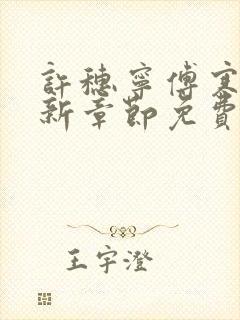 許穗寧傅寒
新章節免費
王宇澄